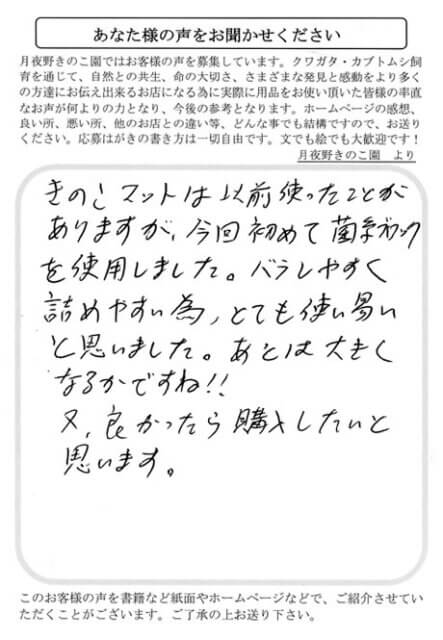 あなた様の声をお聞かせください
月夜野きのこ園ではお客様の声を募集しています。クワガタ・カブトムシ飼
育を通じて、自然との共生、命の大切さ、さまざまな発見と感動をより多く
の方達にお伝え出来るお店になる為に実際に用品をお使い頂いた皆様の率直
なお声が何よりの力となり、今後の参考となります。ホームページの感想、
良い所、悪い所、他のお店との違い等、どんな事でも結構ですので、お送り
ください。応募はがきの書き方は一切自由です。文でも絵でも大歓迎です！
月夜野きのこ園　より
きのこマットは以前使ったことが
ありますが、今回初めて菌糸ブロック
を使用しました。バラしやすく
詰めやすい為、とても使い易い
と思いました。あとは大きく
なるかですね!!
又、良かったら購入したいと
思います。
このお客様の声を書籍など紙面やホームページなどで、ご紹介させてい
ただくことがございます。ご了承の上お送り下さい。